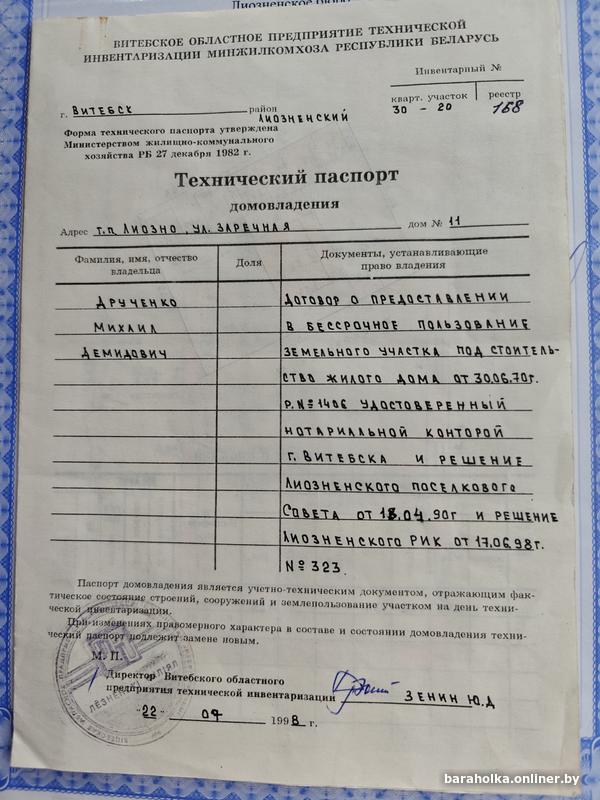 Лиозненское бюро
ВИТЕБСКОЕ ОБЛАСТНОЕ ПРЕДПРИЯТИЕ ТЕХНИЧЕСКОЙ
ИНВЕНТАРИЗАЦИИ МИНЖИЛКОМХОЗА РЕСПУБЛИКИ БЕЛАРУСЬ
Инвентарный №
кварт. участок реестр
30 - 20 158
г. ВИТЕБСК район ЛИОЗНЕНСКИЙ
Форма технического паспорта утверждена
Министерством жилищно-коммунального
хозяйства РБ 27 декабря 1982 г.
Технический паспорт
домовладения
Адрес г.п. ЛИОЗНО, УЛ. ЗАРЕЧНАЯ дом № 11
Фамилия, имя, отчество владельца Доля Документы, устанавливающие право владения
ДРУЧЕНКО ДОГОВОР О ПРЕДОСТАВЛЕНИИ
МИХАИЛ В БЕССРОЧНОЕ ПОЛЬЗОВАНИЕ
ДЕМИДОВИЧ ЗЕМЕЛЬНОГО УЧАСТКА ПОД СТОИТЕЛЬ-
СТВО ЖИЛОГО ДОМА ОТ 30.06.70г.
Р.№1406 УДОСТОВЕРЕННЫЙ
НОТАРИАЛЬНОЙ КОНТОРОЙ
Г. ВИТЕБСКА И РЕШЕНИЕ
ЛИОЗНЕНСКОГО ПОСЕЛКОВОГО
СОВЕТА ОТ 18.04.90г И РЕШЕНИЕ
ЛИОЗНЕНСКОГО РИК ОТ 17.06.98г.
№323.
Паспорт домовладения является учетно-техническим документом, отражающим фак-
тическое состояние строений, сооружений и землепользование участком на день техни-
ческой инвентаризации.
При изменениях правомерного характера в составе и состоянии домовладения техни-
ческий паспорт подлежит замене новым.
М. П.
Директор Витебского областного
предприятия технической инвентаризации ЗЕНИН Ю.Д
"22" 07 1998 г.
ЛЁЗНЕНСКІ ФІЛІЯЛ
baraholka.onliner.by